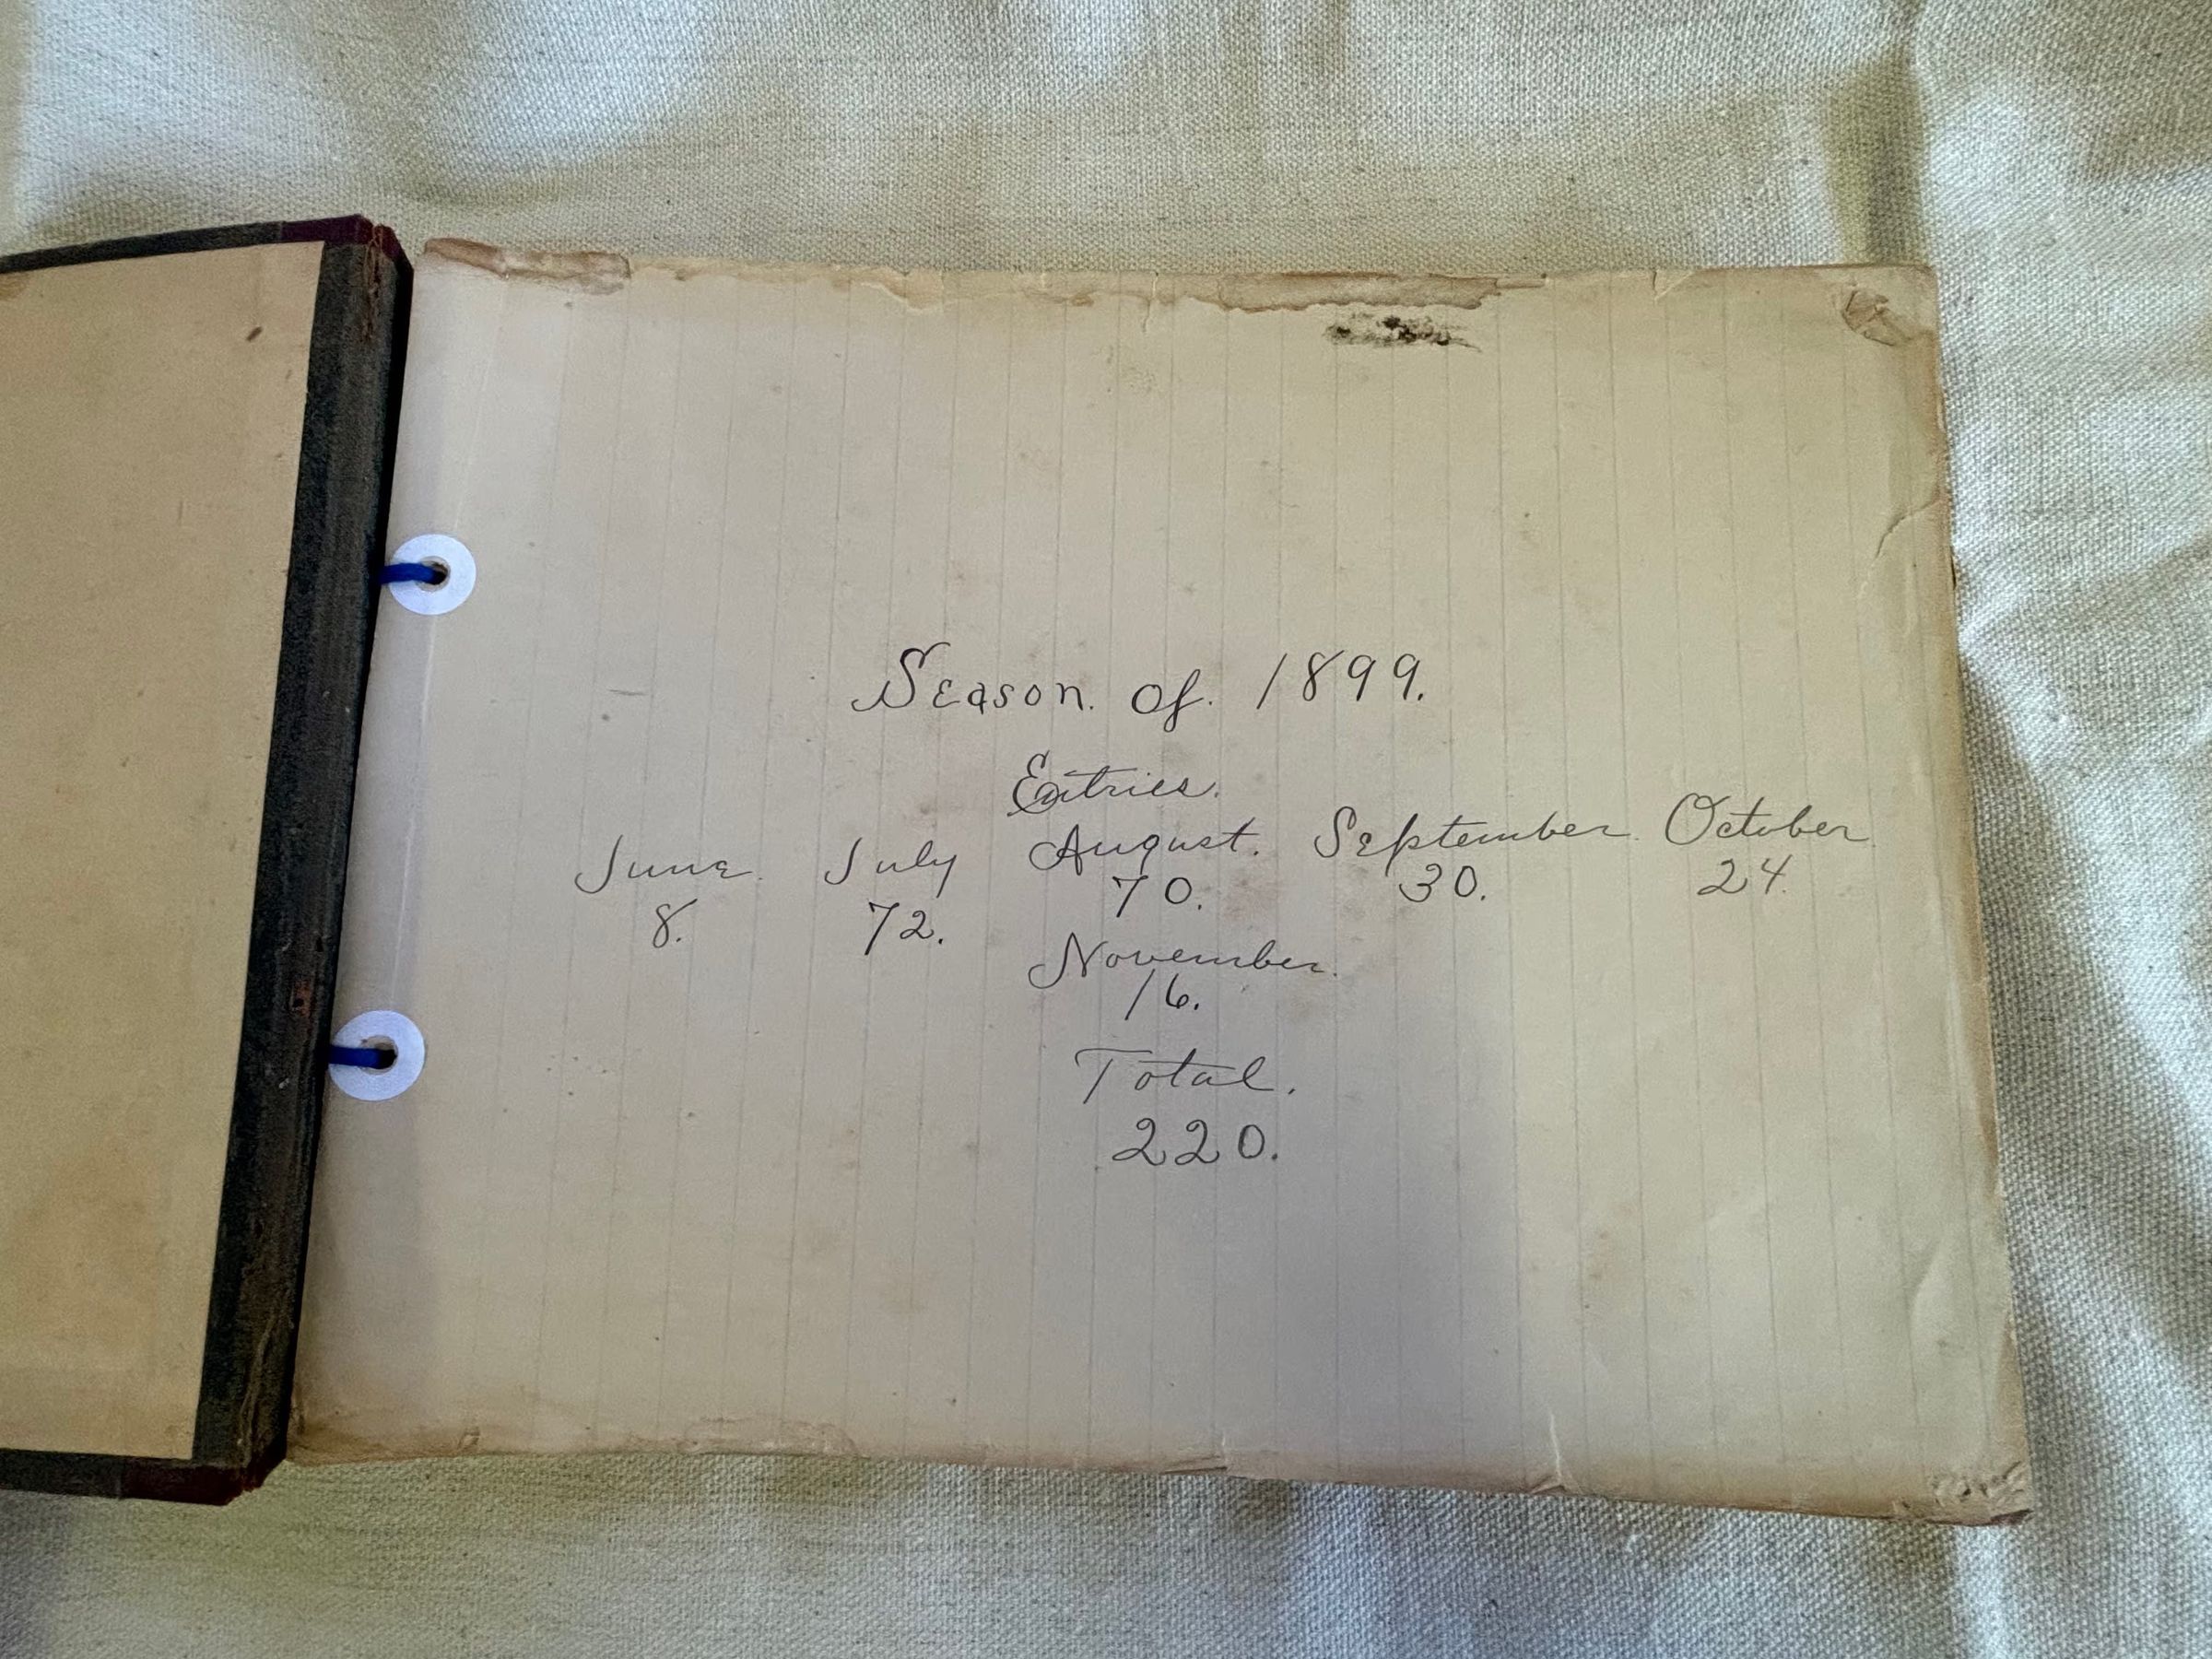 Season. of. 1899.
Entries.
June. July August. September. October
8. 72. 70. 30. 24.
November.
16.
Total.
220.